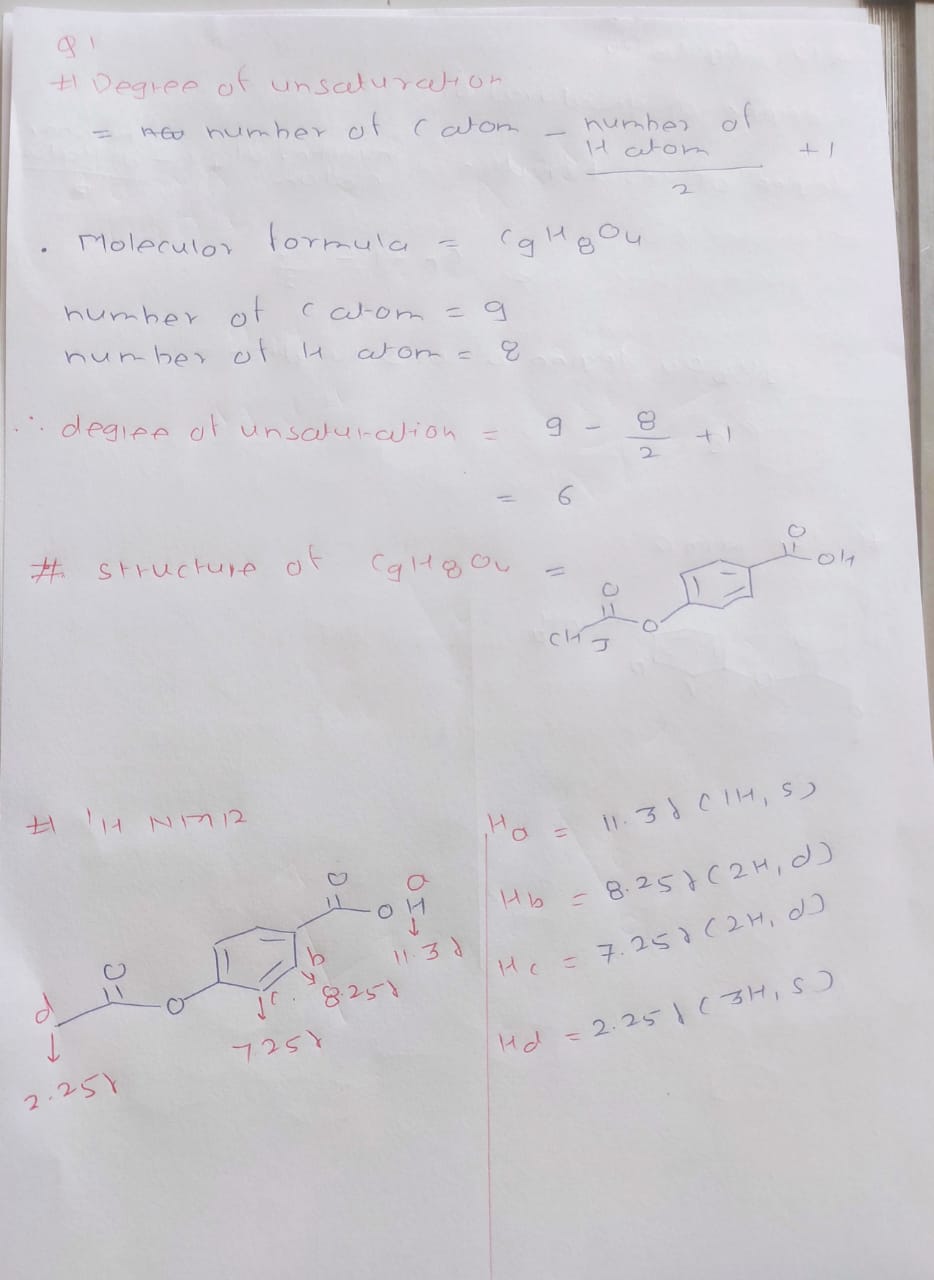 Q 1
# Degree of unsaturation
= number of C atom - number of H atom / 2 + 1
. Moleculor formula = C9H8O4
number of C atom = 9
number of H atom = 8
∴ degree of unsaturation = 9 - 8/2 + 1
= 6
# structure of C9H8O4 =
O
OH
O
O
CH3
# 1H NMR
O a
O H
11.3δ
b
8.25δ
c.
7.25δ
O
O
d
2.25δ
Ha = 11.3δ (1H, s)
Hb = 8.25δ (2H, d)
Hc = 7.25δ (2H, d)
Hd = 2.25δ (3H, s)